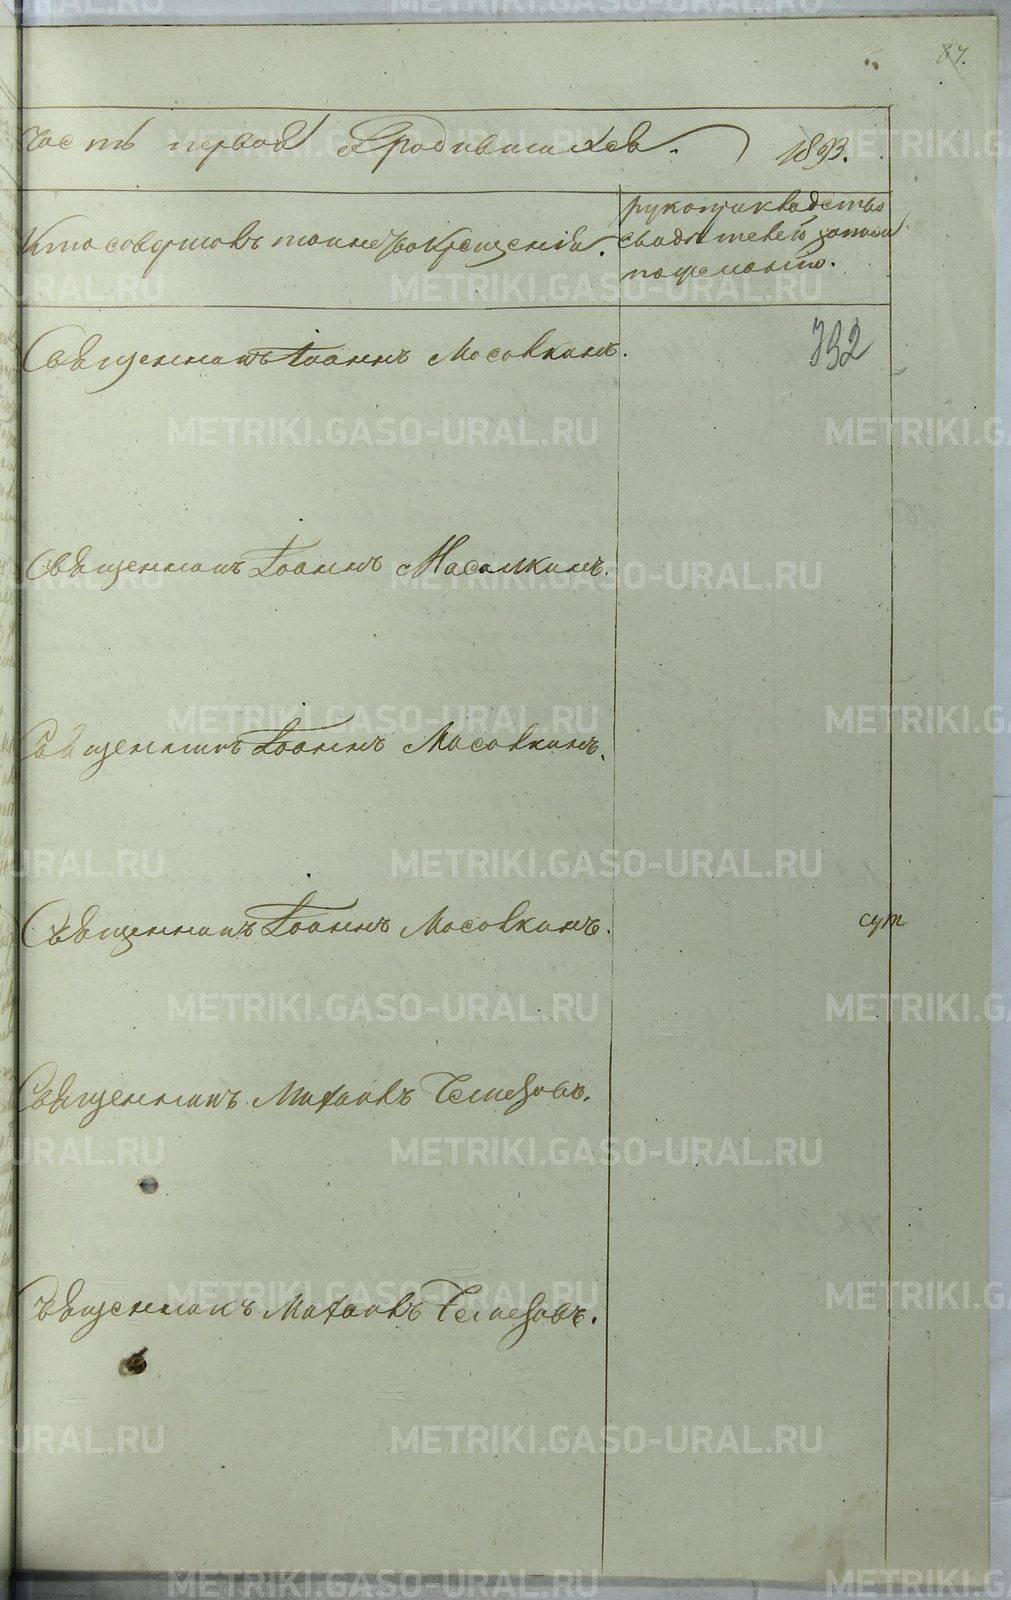 87.
Часть первая о родившихся. 1893.
Кто совершалъ таинство крещенія.
рукоприкладство
свидѣтелей записи
по желанію.
Священникъ Іоаннъ Мосолкинъ.
732
Священникъ Іоаннъ Масалкинъ.
Священникъ Іоаннъ Мосолкинъ.
Священникъ Іоаннъ Мосолкинъ.
сут
Священникъ Михаилъ
Священникъ Михаилъ
METRIKI.GASO-URAL.RU